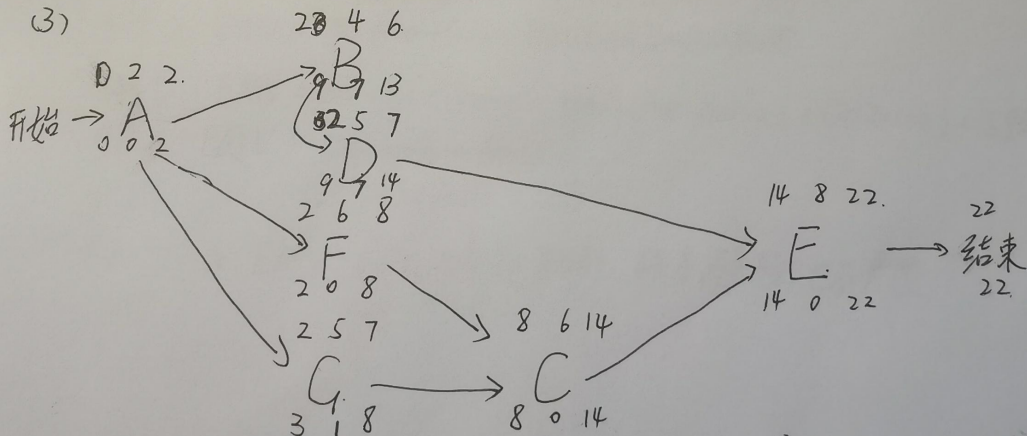 (3)
0 2 2.
开始 A
0 0 2
2 4 6.
B
9 7 13
2 5 7
D
9 7 14
2 6 8
F
2 0 8
2 5 7
G
3 1 8
8 6 14
C
8 0 14
14 8 22.
E
14 0 22
22
结束
22.